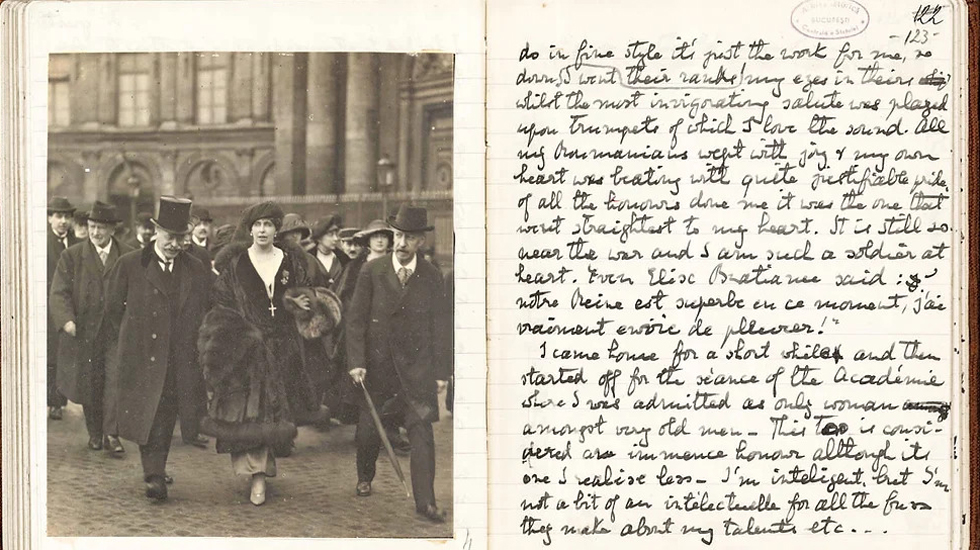 122
123
BUCUREȘTI
do in fine style it's just the work for me, so
down I went their ranks, my eyes in theirs
whilst the most invigorating salute was played
upon trumpets of which I love the sound. All
my Roumanians wept with joy & my own
heart was beating with quite justifiable pride,
of all the honours done me it was the one that
went straightest to my heart. It is still so
near the war and I am such a soldier at
heart. Even Elise Bratianu said : "
notre Reine est superbe en ce moment, j'ai
vraiment envie de pleurer!"
I came home for a short while and then
started off for the séance of the Académie
where I was admitted as only woman
amongst very old men - This too is consi-
dered an immence honour although it's
one I realise less - I'm inteligent, but I'm
not a bit of an intelectuelle for all the fuss
they make about my talents etc...